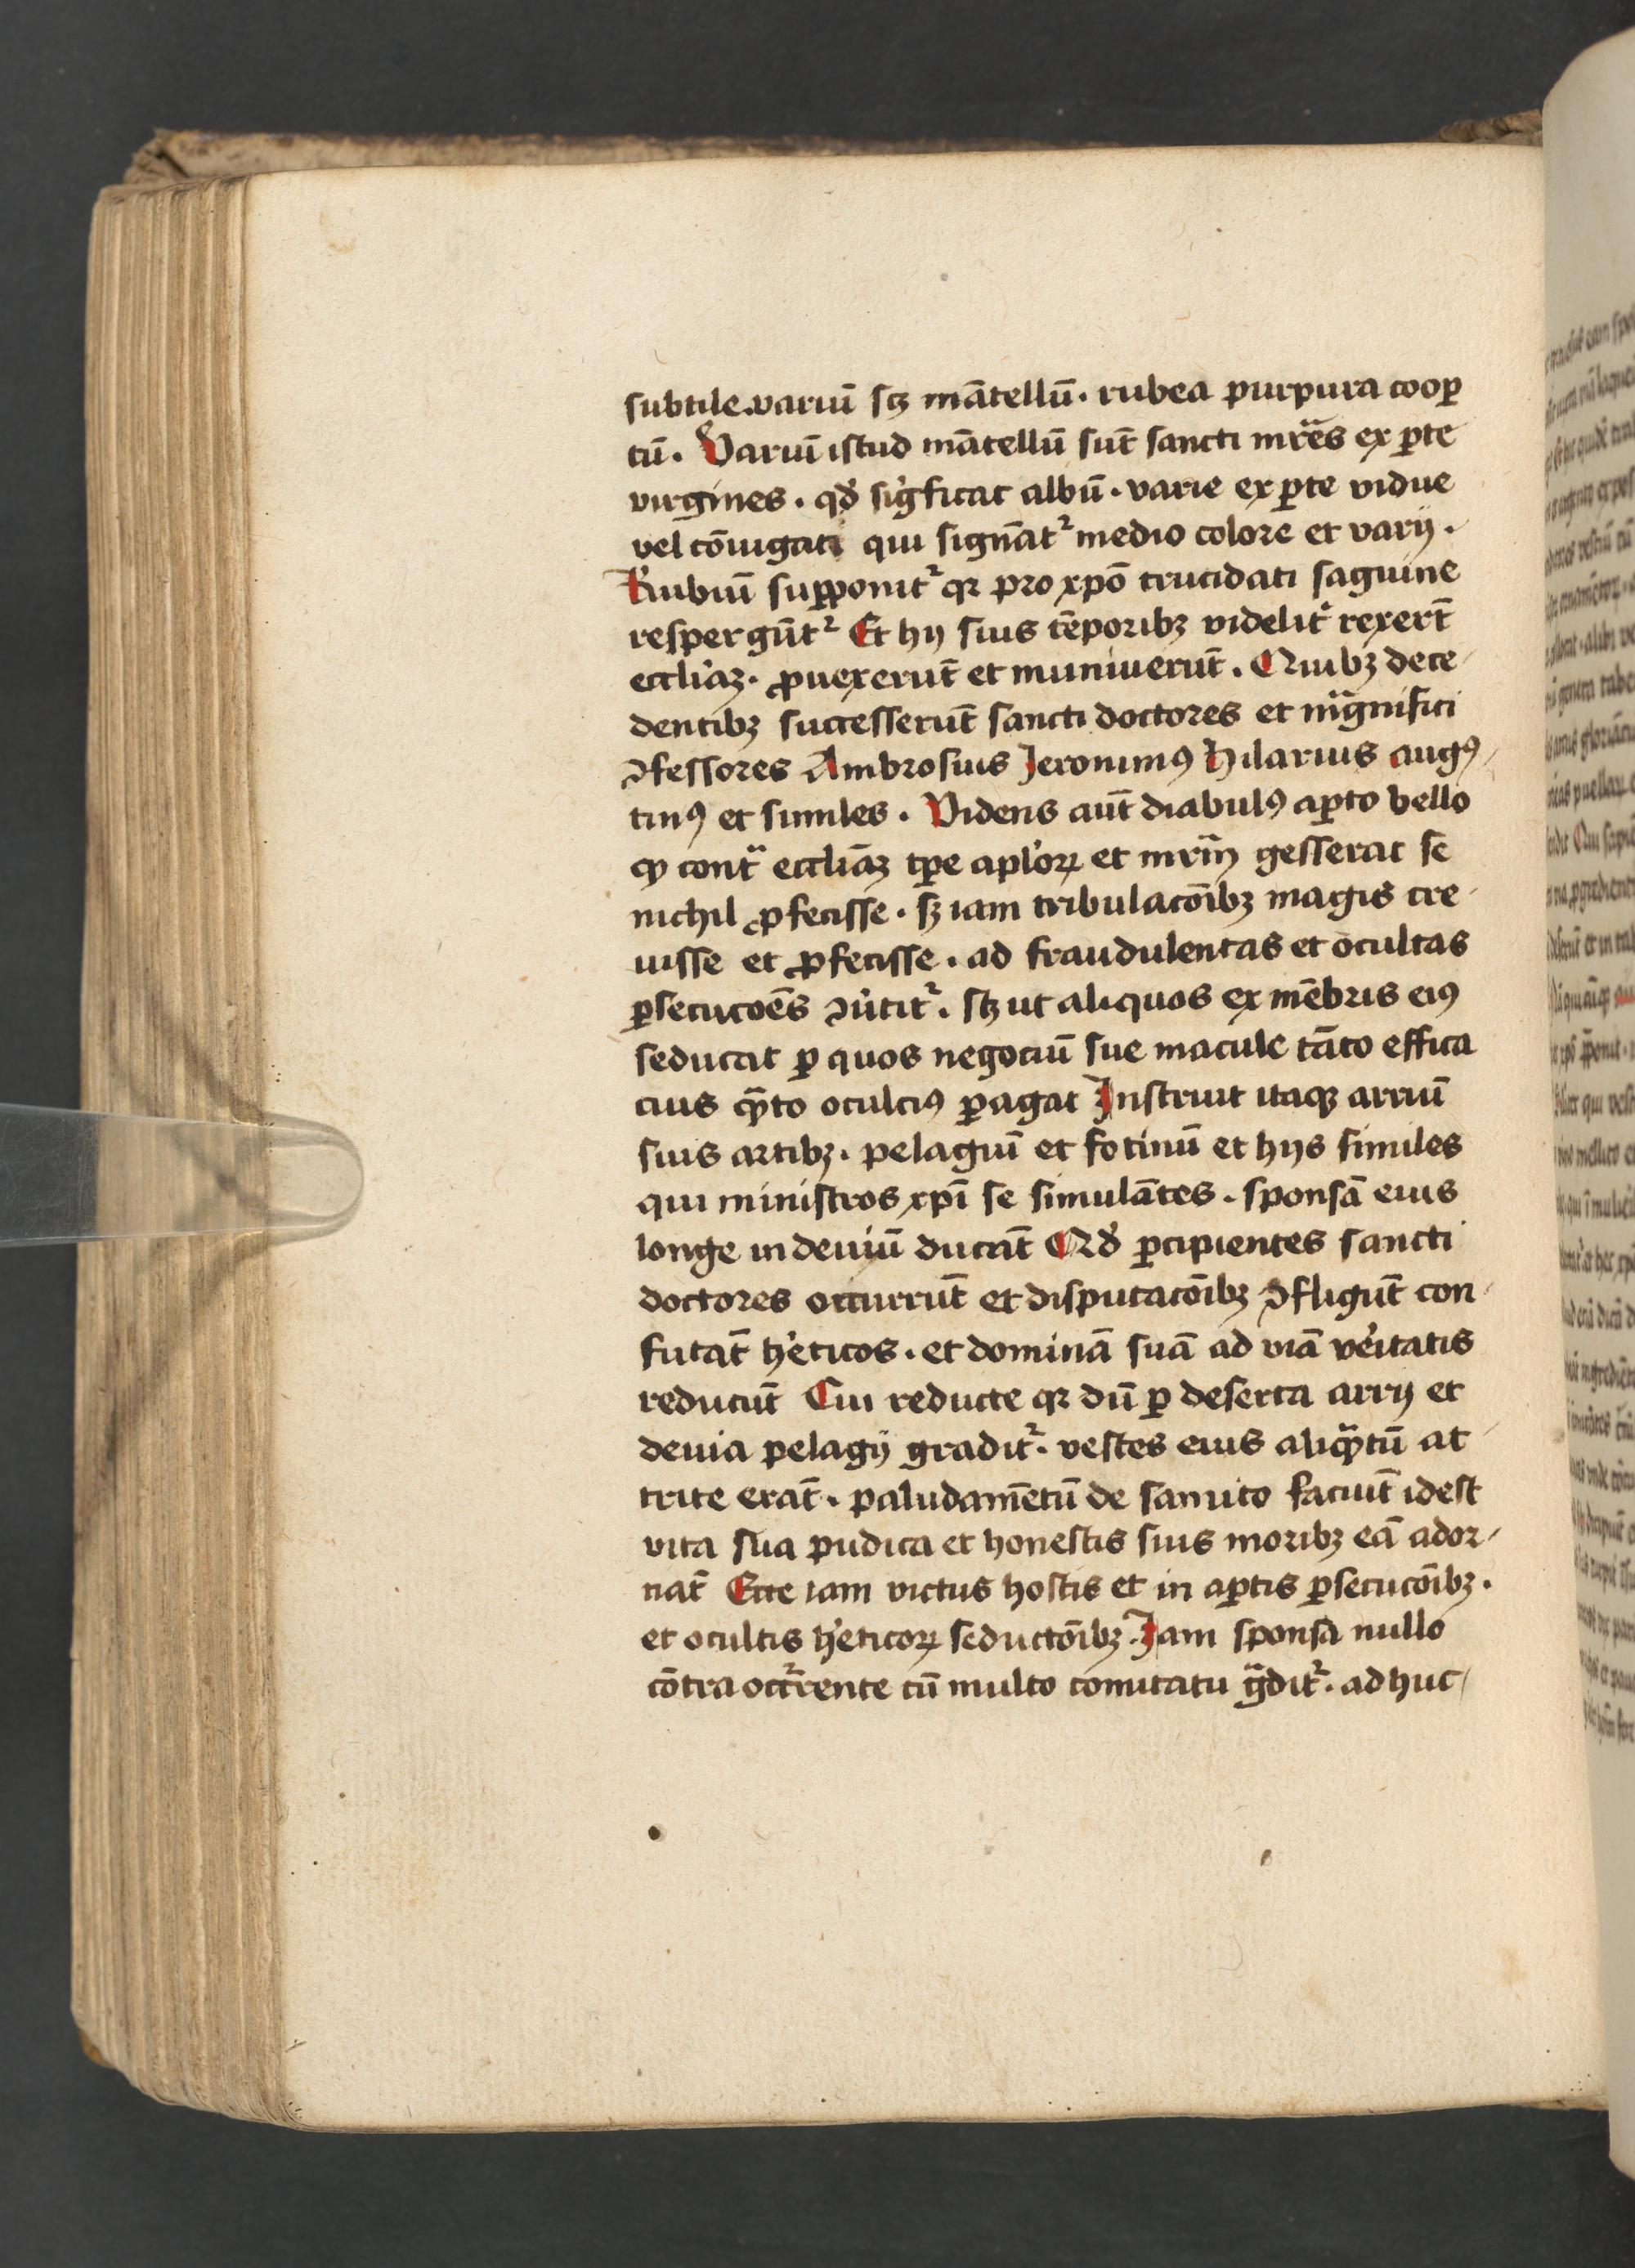 subtile.variū scꝫ mātellū. rubea purpura cooꝑ
tū. Variū istud mātellū sūt sancti mr̄es ex ꝑte
virgines. qd̛ sigᷝficat albū. varie ex ꝑte vidue
vel cōiugati qui signāt᷑ medio colore et varij.
Rubiū supponit᷑ qꝛ pro xp̄o trucidati sāguine
respergūt᷑ Et hij suis tēporibꝫ videlit᷑ rexerūt
eccl̄iaꝫ. ꝓuexerūt et muniuerūt. Quibꝫ dece
dentibꝫ successerūt sancti doctores et mᷓgnifici
ꝯfessores Ambrosius Jeronimꝰ Hilarius augꝰ
tinꝰ et similes. Videns aūt diabulꝰ aꝑto bello
qꝫ contᷓ eccl̄iāꝫ tꝑe apl̄oꝝ et mr̄m̄ gesserat se
nichil ꝓfecisse. sꝫ iam tribulacōibꝫ magis cre
uisse et ꝓfecisse. ad fraudulentas et ocultas
ꝑsecucōes ꝯu̇tit᷑. scꝫ ut aliquos ex mēbris eiꝰ
seducat ꝑ quos negociū sue macule tāto effica
cius qᷓ̄to oculciꝰ ꝑagat Instruit itaqꝫ arriū
suis artibꝫ. pelagiū et fotinū et hijs similes
qui ministros xp̄i se simulātes. sponsā eius
longe in deuiū ducūt Qd̛ ꝑcipientes sancti
doctores occurrūt et disputacōibꝫ ꝯfligūt con
futāt h̛eticos. et dominā suā ad viā ve̛itatis
reducūt Cui reducte qꝛ dū ꝑ deserta arrij et
deuia pelagij gradit᷑. vestes eius aliqᷓ̄tū at
trite erāt. paludamētū de samito faciūt idest
vita sua pudica et honestis suis moribꝫ eā ador
nāt Ecce iam victus hostis et in aꝑtis ꝑsecucōibꝫ.
et ocultis h̛eticoꝝ seductōibꝫ. Jam sponsa nullo
cōtra occr᷑rente cū multo comitatu gᷓdit᷑. ad huc